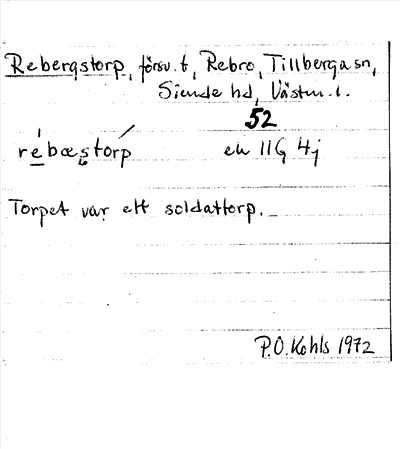 Rebergstorp, försv. t, Rebro, Tillberga sn,
Siende hd, Västm. l.
52
rebæstorp ek 11G 4j
Torpet var ett soldattorp.
P.O. Kohls 1972